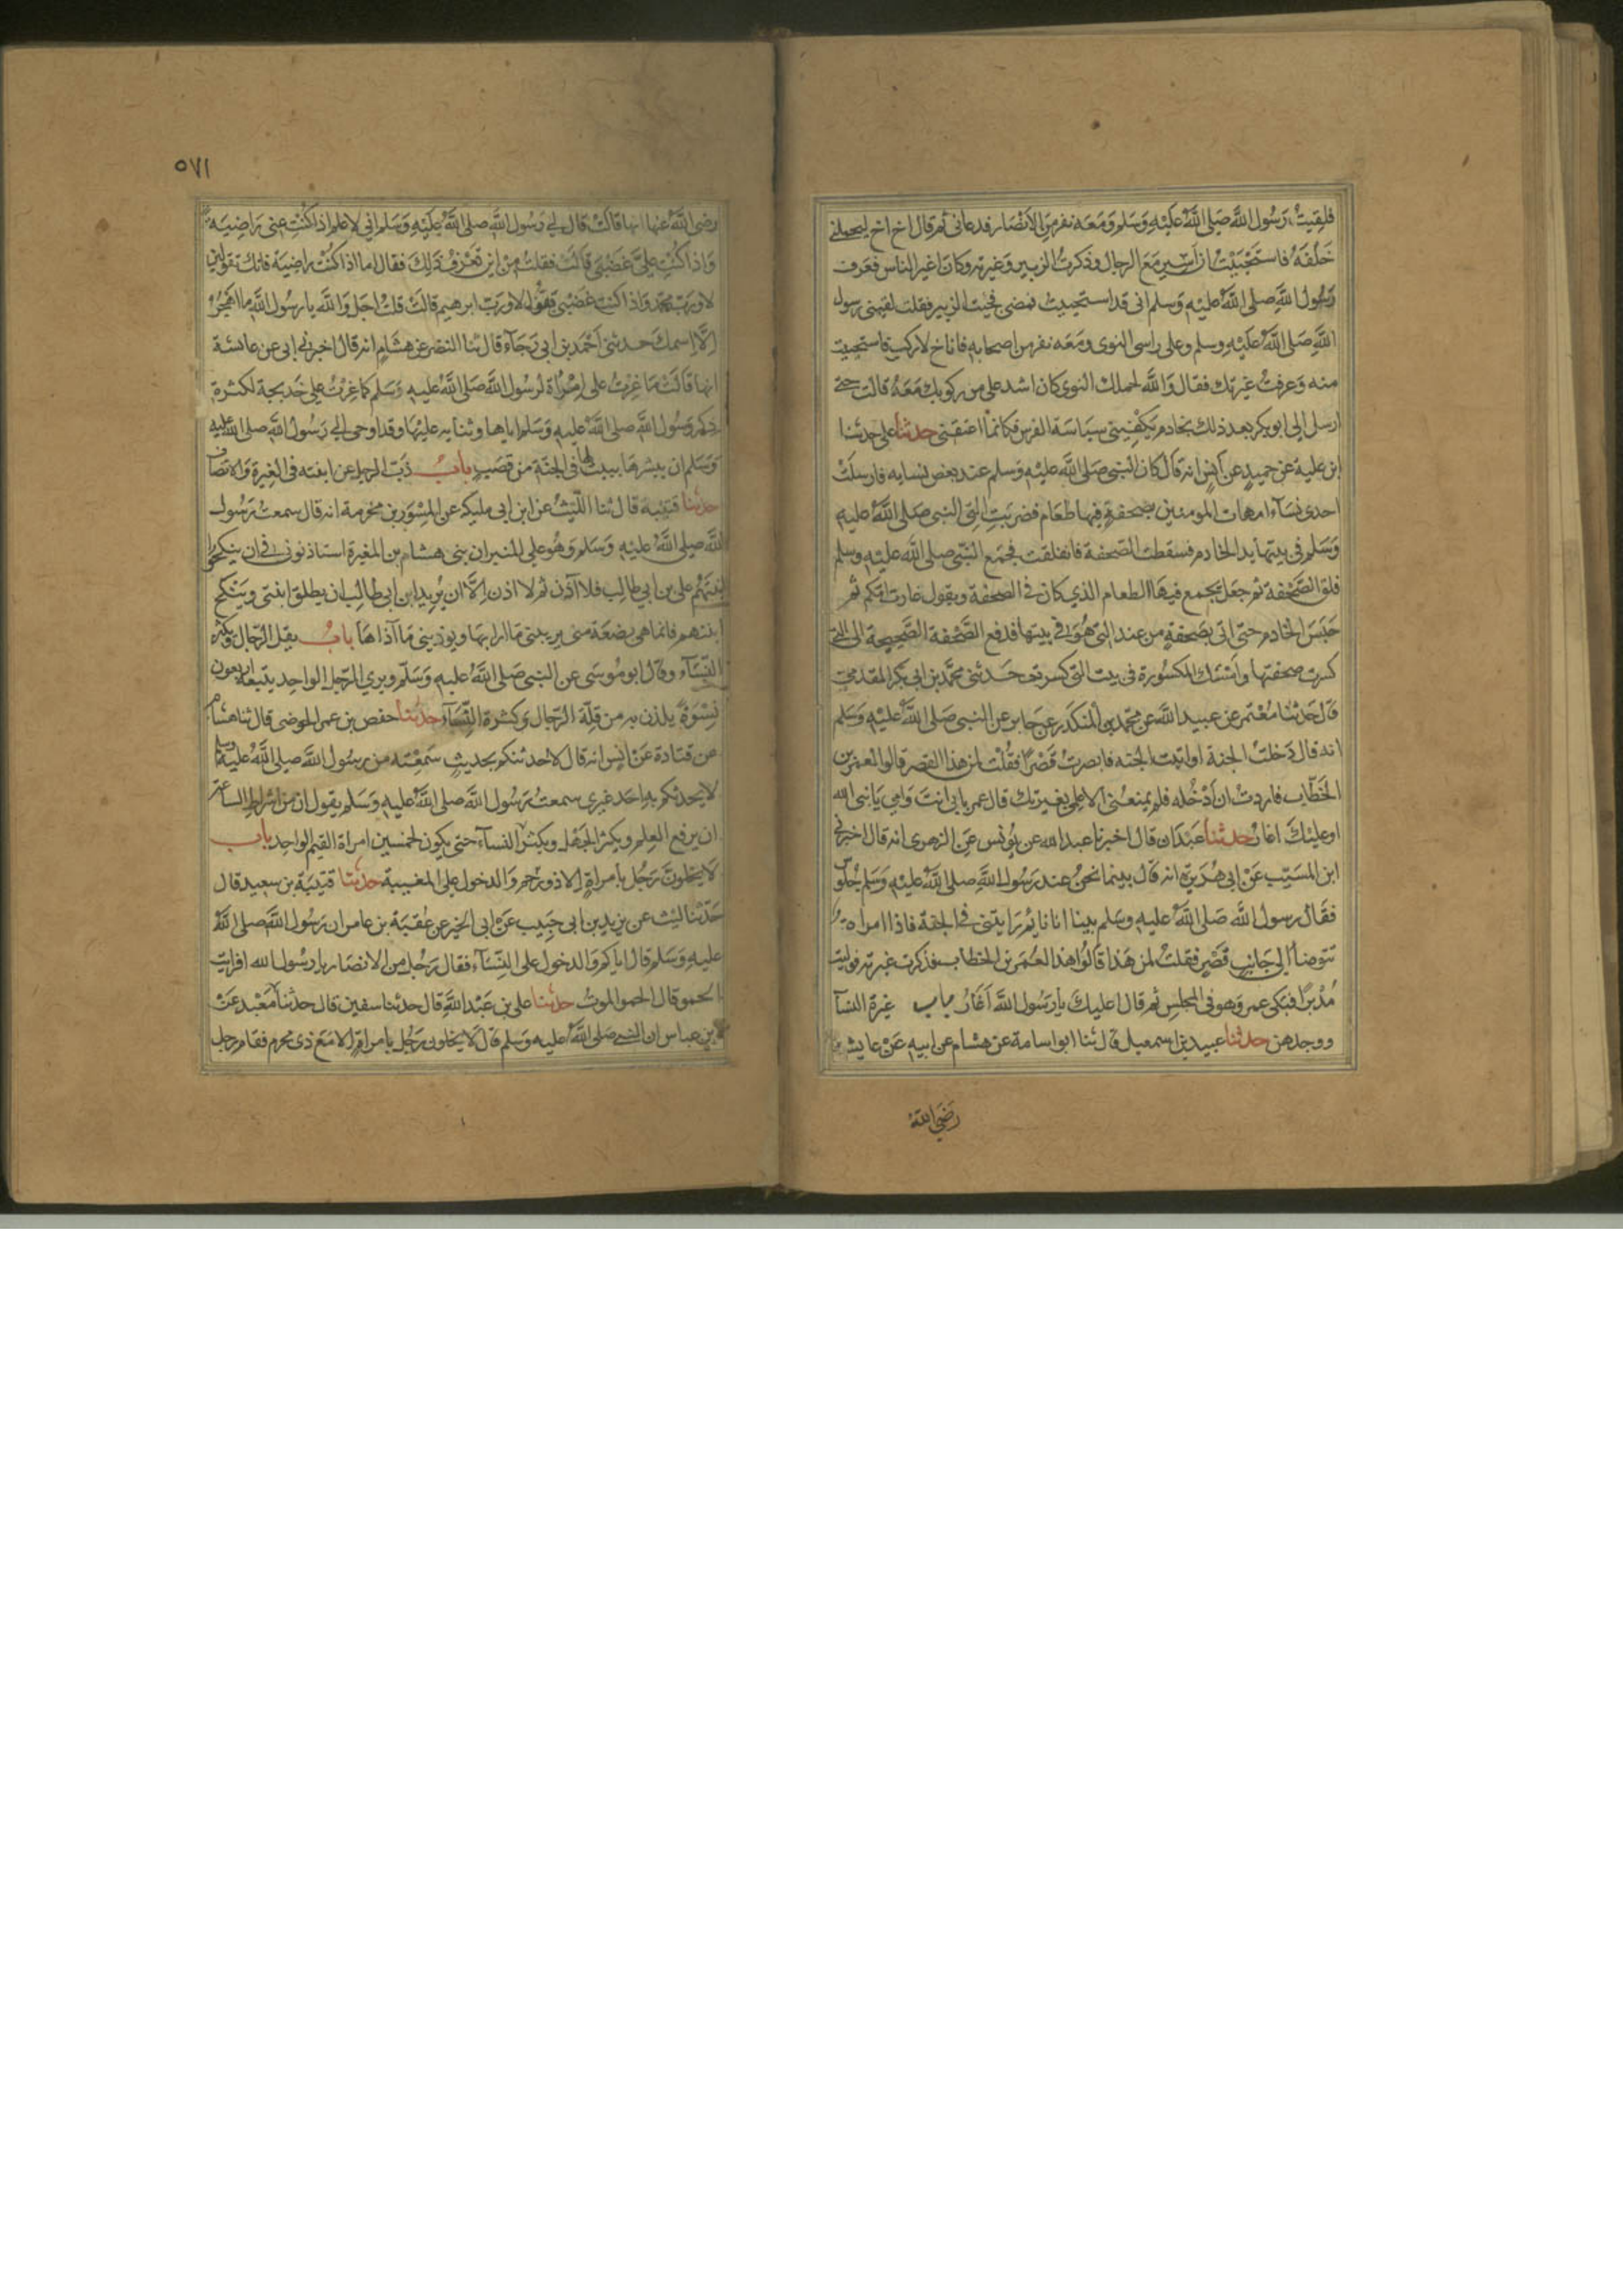 فلقيت رسول الله صلى الله عليه وسلم ومعه نفر من الانصار فدعانى ثم قال اخ اخ ليحملنى
خلفه فاستحييت ان اسير مع الرجال وذكرت الزبير وغيرته وكان اغير الناس فعرف
رسول الله صلى الله عليه وسلم انى قد استحييت فمضى فجئت الزبير فقلت لقينى رسول
الله صلى الله عليه وسلم وعلى راسى النوى ومعه نفر من اصحابه فاناخ لاركب فاستحييت
منه وعرفت غيرتك فقال والله لحملك النوى كان اشد على من ركوبك معه قالت حتى
ارسل الى ابو بكر بعد ذلك بخادم يكفينى سياسة الفرس فكانما اعتقنى حدثنا على حدثنا
ابن علية عن حميد عن انس انه قال كان النبى صلى الله عليه وسلم عند بعض نسايه فارسلت
احدى نساء امهات المومنين بصحفة فيها طعام فضربت التى النبى صلى الله عليه
وسلم فى بيتها يد الخادم فسقطت الصحفة فانفلقت فجمع النبى صلى الله عليه وسلم
فلق الصحفة ثم جعل يجمع فيها الطعام الذى كان فى الصحفة ويقول غارت امكم ثم
حبس الخادم حتى اتى بصحفة من عند التى هو فى بيتها فدفع الصحفة الصحيحة الى التى
كسرت صحفتها وامسك المكسورة فى بيت التى كسرت حدثنى محمد بن ابى بكر المقدمى
قال حدثنا معتمر عن عبيد الله عن محمد بن المنكدر عن جابر عن النبى صلى الله عليه وسلم
انه قال دخلت الجنة او اتيت الجنه فابصرت قصرا فقلت لمن هذا القصر قالوا لعمر بن
الخطاب فاردت ان ادخله فلم يمنعنى الا علمى بغيرتك قال عمر بابى انت وامى يا نبى الله
اوعليك اغار حدثنا عبدان قال اخبرنا عبد الله عن يونس عن الزهرى انه قال اخبرنى
ابن المسيب عن ابى هريرة انه قال بينما نحن عند رسول الله صلى الله عليه وسلم جلوس
فقال رسول الله صلى الله عليه وسلم بينا انا نايم رايتنى فى الجنة فاذا امراة
تتوضا الى جانب قصر فقلت لمن هذا قالوا هذا لعمر بن الخطاب فذكرت غيرته فوليت
مدبرا فبكى عمر وهو فى المجلس ثم قال اعليك يا رسول الله اغار باب غيرة النساء
ووجدهن حدثنا عبيد بن اسمعيل قال ثنا ابو اسامة عن هشام عن ابيه عن عايشة
رضى الله
٥٧١
رضى الله عنها انها قالت قال لى رسول الله صلى الله عليه وسلم انى لاعلم اذا كنت عنى راضية
واذا كنت على غضبى قالت فقلت من اين تعرف ذلك فقال اما اذا كنت راضية فانك تقولين
لا ورب محمد واذا كنت غضبى تقول لا ورب ابرهيم قالت قلت اجل والله يا رسول الله ما اهجر
الا اسمك حدثنى احمد بن ابى رجاء قال ثنا النضر عن هشام انه قال اخبرنى ابى عن عائشة
انها قالت ما غرت على امراة لرسول الله صلى الله عليه وسلم كما غرت على خديجة لكثرة
ذكر رسول الله صلى الله عليه وسلم اياها وثنايه عليها وقد اوحى الى رسول الله صلى الله عليه
وسلم ان يبشرها ببيت لها فى الجنة من قصب باب ذب الرجل عن ابنته فى الغيرة والانصاف
حدثنا قتيبة قال ثنا الليث عن ابن ابى مليكه عن المسور بن مخرمة انه قال سمعت رسول
الله صلى الله عليه وسلم وهو على المنبر ان بنى هشام بن المغيرة استاذنونى فى ان ينكحوا
ابنتهم على بن ابى طالب فلا آذن ثم لا اذن الا ان يريد ابن ابى طالب ان يطلق ابنتى وينكح
ابنتهم فانما هى بضعة منى يريبنى ما ارابها ويوذينى ما آذاها باب يقل الرجال ويكثر
النساء وقال ابو موسى عن النبى صلى الله عليه وسلم ويرى الرجل الواحد يتبعه اربعون
نسوة يلذن به من قلة الرجال وكثرة النساء حدثنا حفص بن عمر الحوضى قال ثنا هشام
عن قتادة عن انس انه قال لاحدثنكم بحديث سمعته من رسول الله صلى الله عليه وسلم
لا يحدثكم به احد غيرى سمعت رسول الله صلى الله عليه وسلم يقول ان من اشراط الساعة
ان يرفع العلم ويكثر الجهل ويكثر النساء حتى يكون لخمسين امراة القيم الواحد باب
لا يخلون رجل بامراة الا ذو رحم والدخول على المغيبة حدثنا قتيبة بن سعيد قال
حدثنا ليث عن يزيد بن ابى حبيب عن ابى الخير عن عقبة بن عامر ان رسول الله صلى الله
عليه وسلم قال اياكم والدخول على النساء فقال رجل من الانصار يا رسول الله افرايت
الحمو قال الحمو الموت حدثنا على بن عبد الله قال حدثنا سفين قال حدثنا معبد عن
ابن عباس ان النبى صلى الله عليه وسلم قال لا يخلون رجل بامراة الا مع ذى محرم فقام رجل